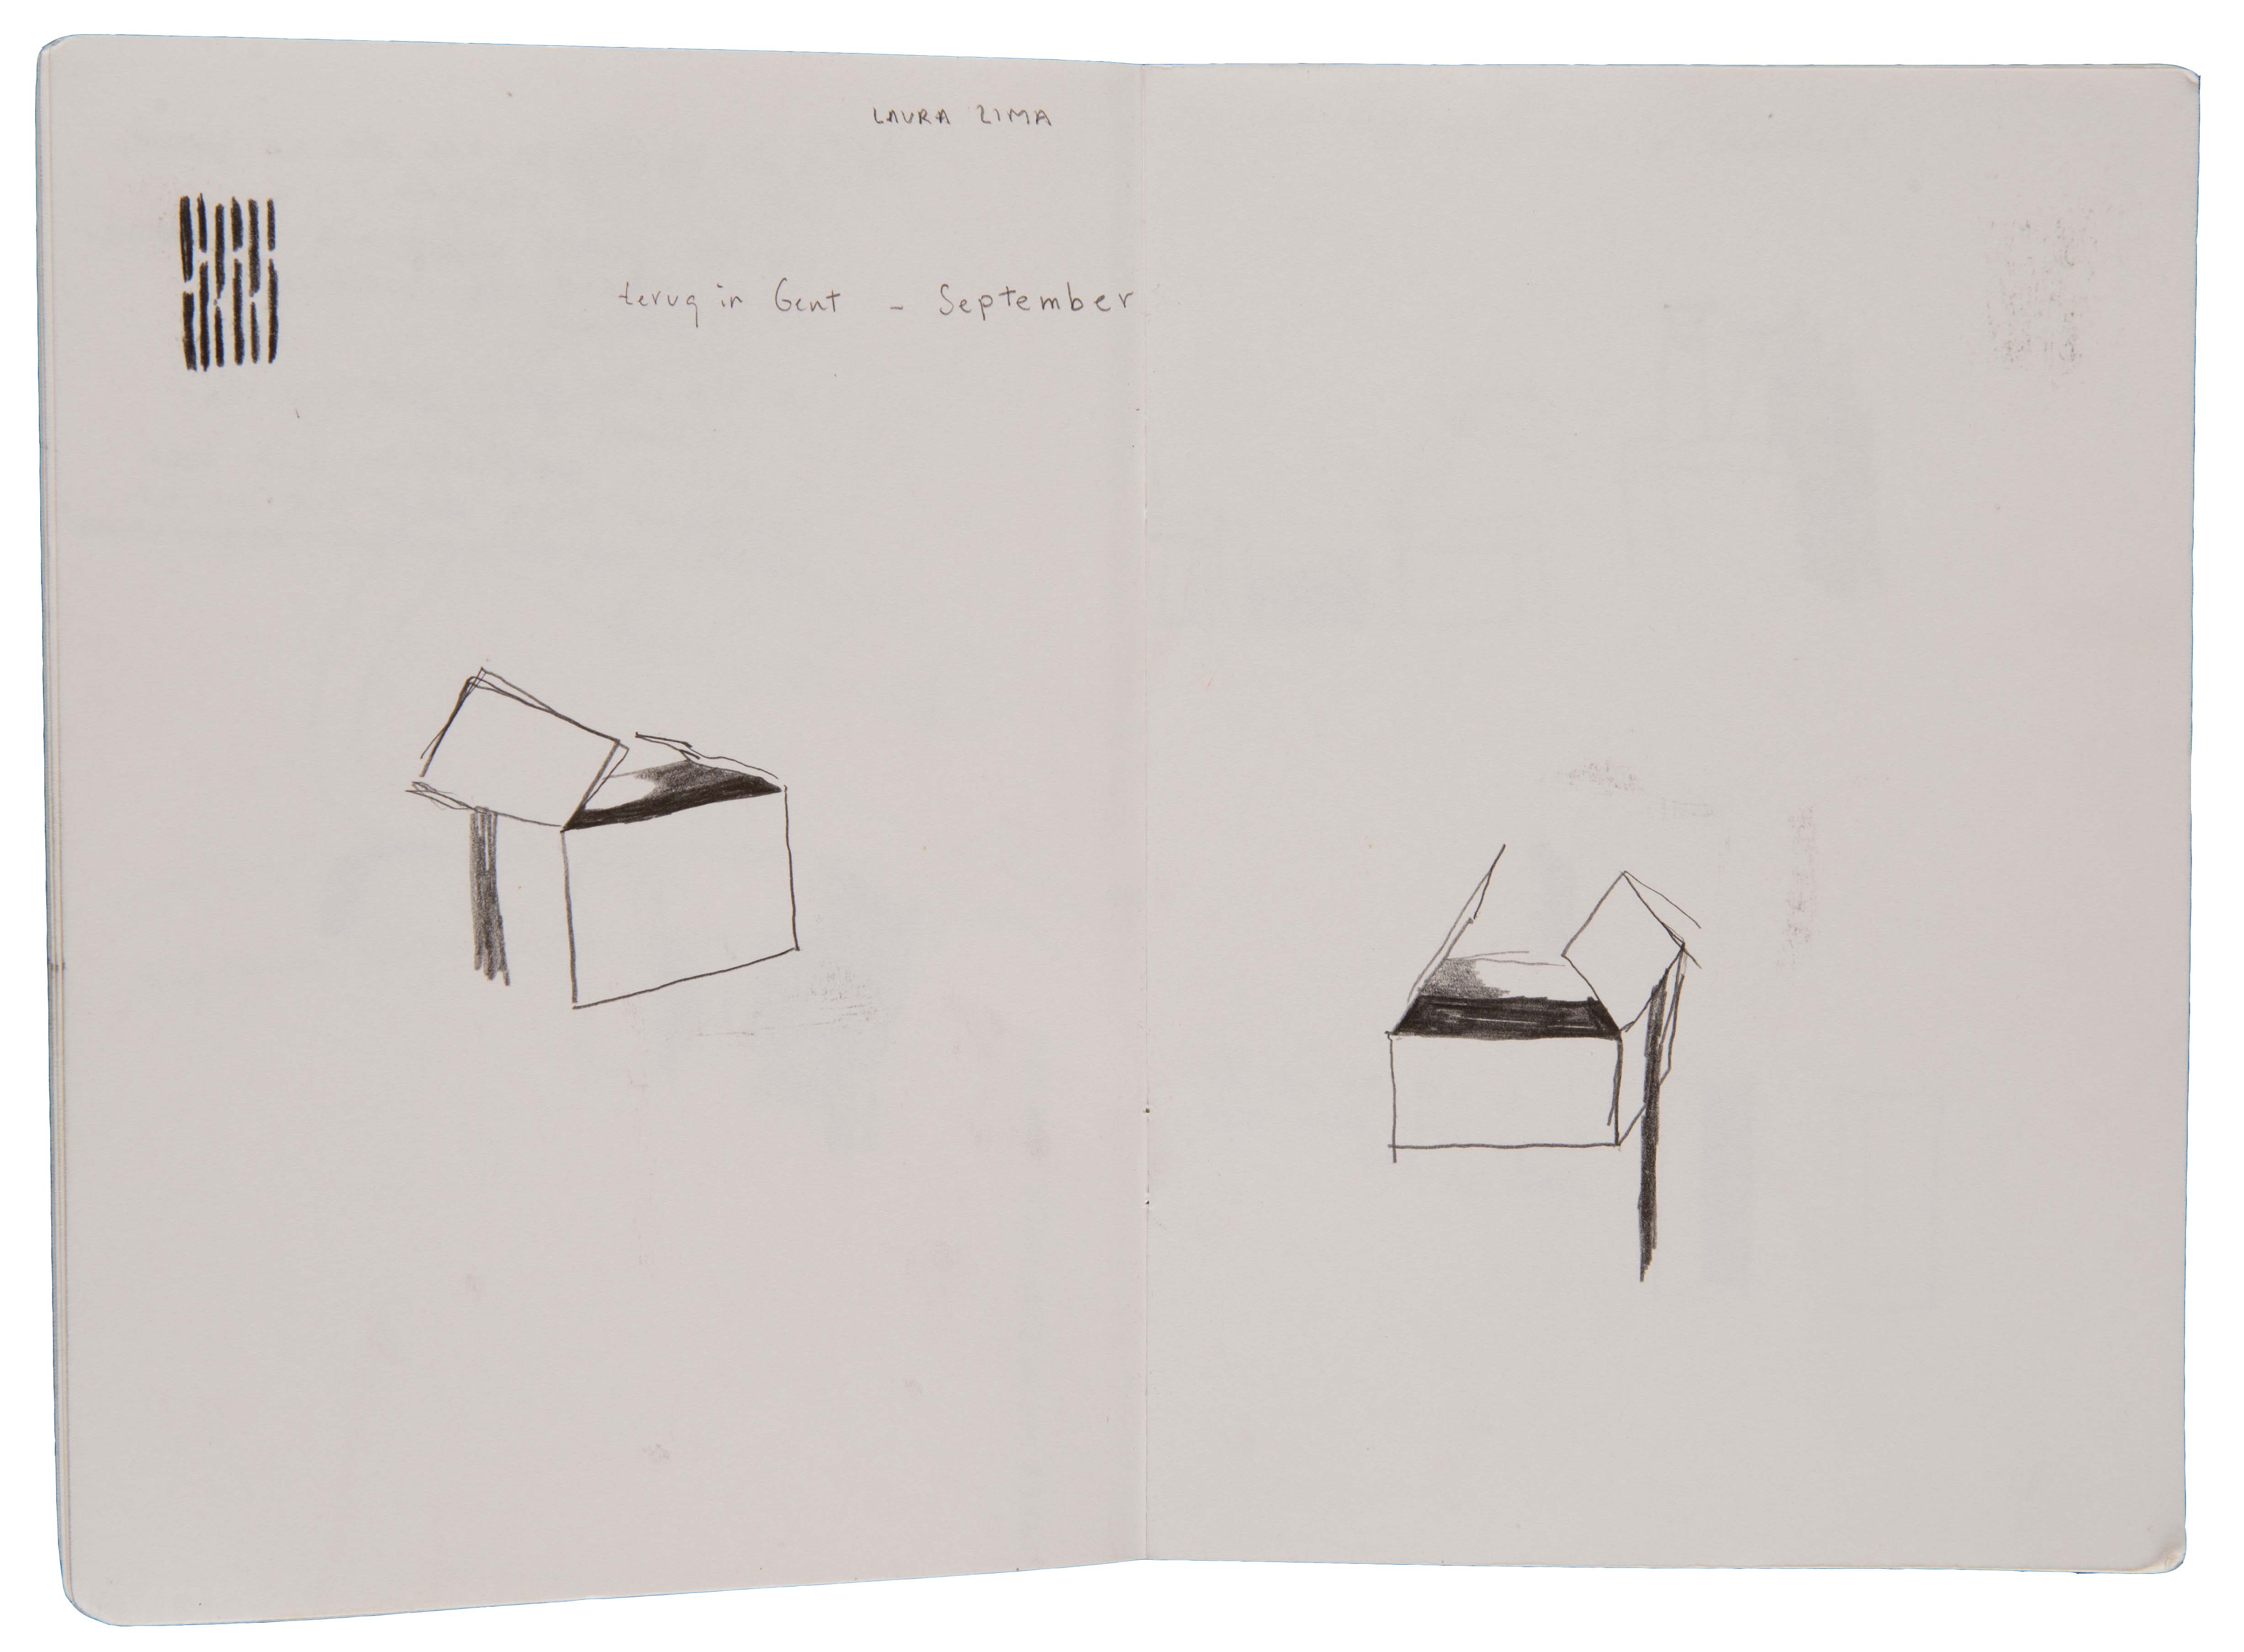 LAURA ZIMA
terug in Gent - September